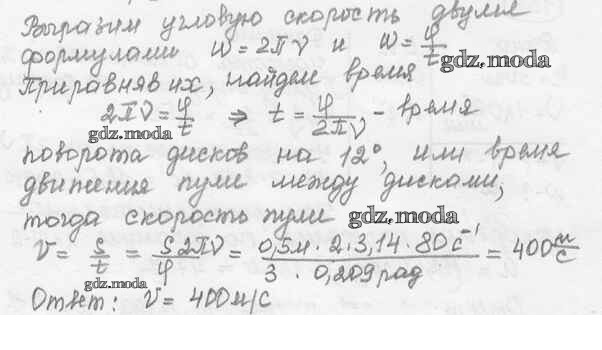 Выразим угловую скорость двумя
формулами ω = 2πν и ω = φ/t gdz.moda
Приравняв их, найдем время
2πν = φ/t ⇒ t = φ/2πν, - время
gdz.moda
поворота дисков на 12°, или время
движения пули между дисками,
тогда скорость пули gdz.moda
V = S/t = S2πν/φ = 0,5м · 2·3,14 · 80 с⁻¹ / 3 · 0,209 рад = 400 м/с
gdz.moda
Ответ: V = 400м/с